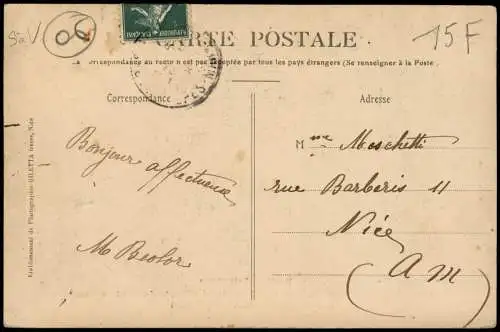 CARTE POSTALE
15F
La Correspondance au recto n est pas acceptée par tous les pays étrangers (Se renseigner à la Poste
Correspondance
Adresse
Bonjour affectueux
M Beolor
Mme Moschetti
rue Barberis 11
Nice
(A M)
Etablissement de Photographie GILETTA frères, Nice